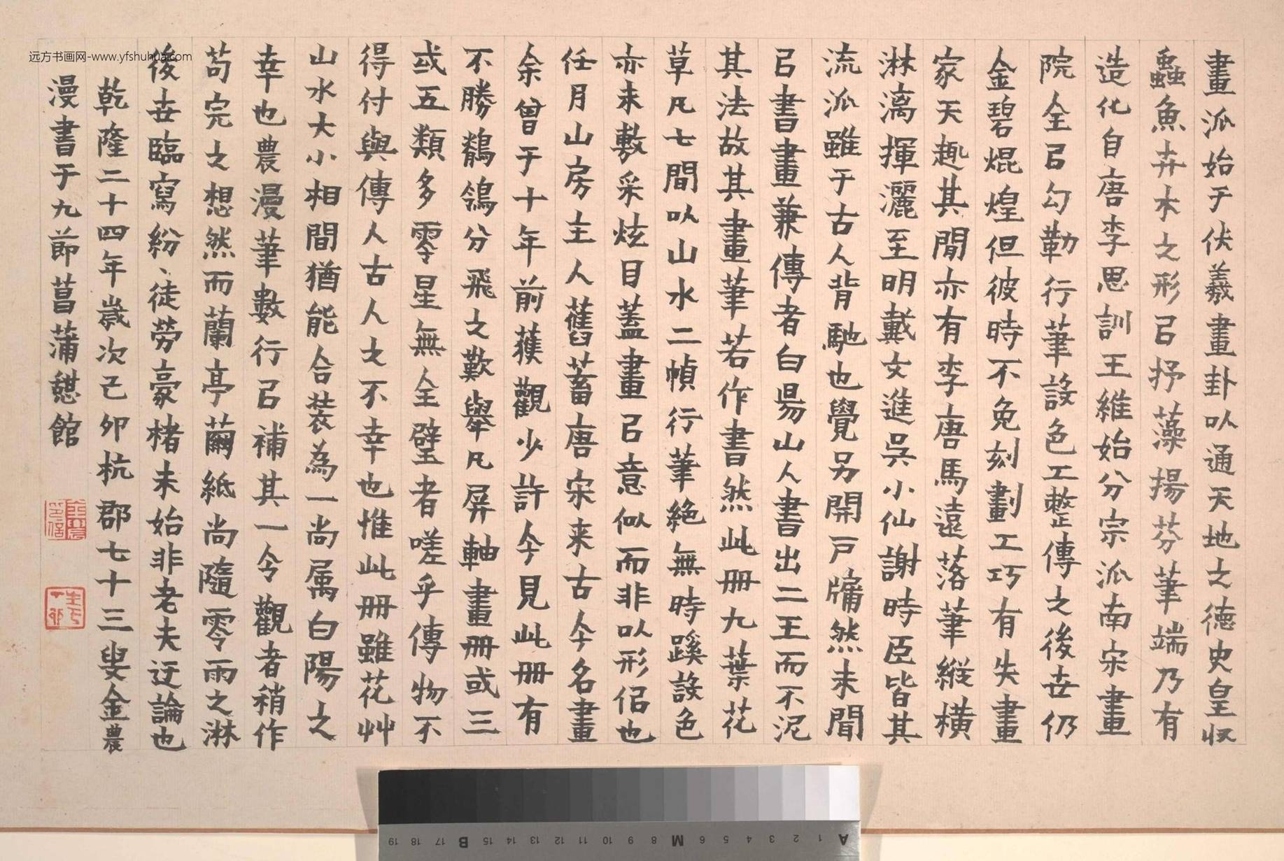 畫派始于伏羲畫卦以通天地之德史皇收
蟲魚卉木之形㠯抒藻揚芬筆端乃有
造化自唐李思訓王維始分宗派南宋畫
院全㠯勾勒行筆設色工整傳之後世仍
金碧焜煌但彼時不免刻劃工巧有失畫
家天趣其間亦有李唐馬遠落筆縱橫
淋漓揮灑至明戴文進吳小仙謝時臣皆其
流派雖于古人背馳也覺另開戸牖然未聞
㠯書畫兼傳者白昜山人書出二王而不泥
其法故其畫筆若作書然此冊九葉花
草凡七間以山水二幀行筆絕無時蹊設色
亦未敷采炫目蓋畫㠯意似而非以形侶也
任月山房主人舊蓄唐宋来古今名畫
余曾于十年前獲觀少許今見此冊有
不勝鶺鴒分飛之歎舉凡屏軸畫冊或三
或五類多零星無全璧者嗟乎傳物不
得付與傳人古人之不幸也惟此冊雖花艸
山水大小相間猶能合裝為一尚属白陽之
幸也農漫筆數行㠯補其一令觀者稍作
苟完之想然而蘭亭繭紙尚隨零雨之淋
後世臨寫紛〻徒勞豪楮未始非老夫迂論也
乾隆二十四年歲次己卯杭郡七十三叟金農
漫書于九節菖蒲憩館
远方书画网-www.yfshuhua.com
A 1 2 3 4 5 6 M 8 9 10 11 12 13 14 15 B 17 18 19